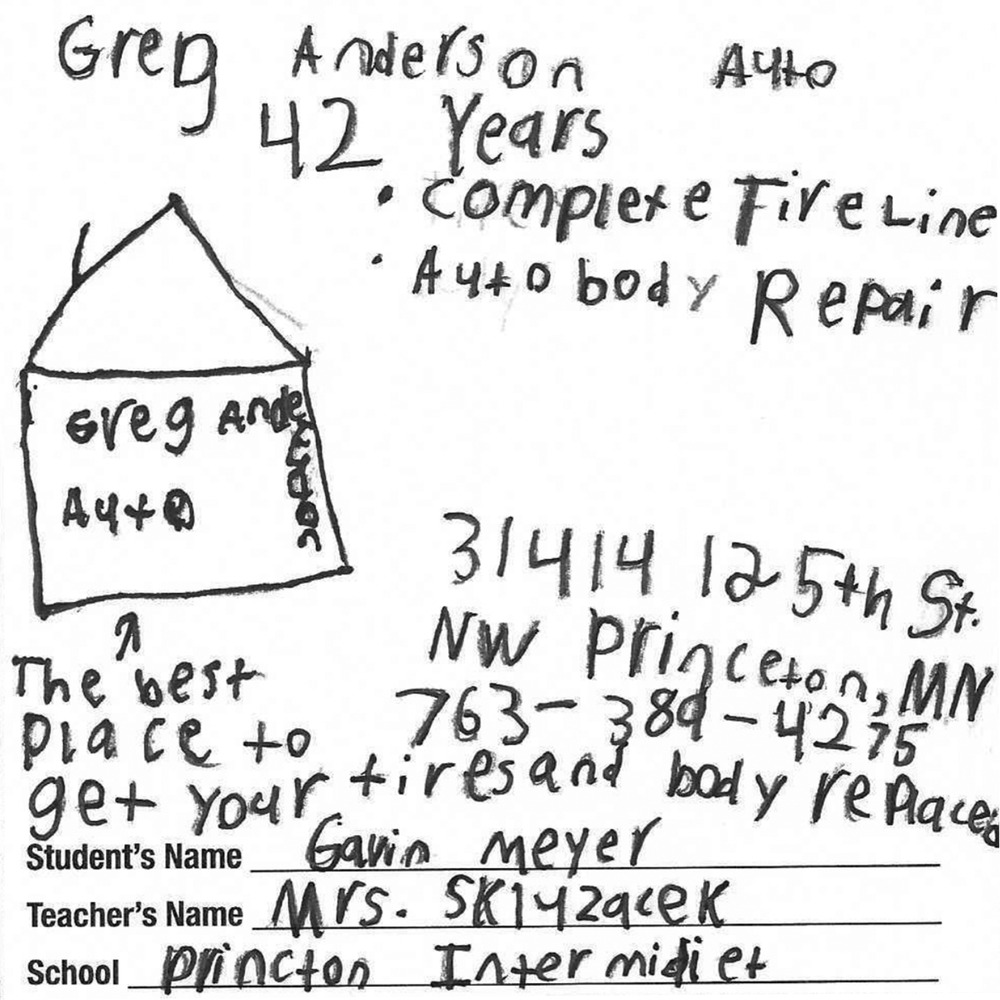 Greg Anderson Auto
42 Years
• Complete Tire Line
• Auto body Repair
Greg Anderson
Auto
31414 125th St.
NW Princeton, MN
763-389-4275
The best
place to
get your tires and body replaced
Student's Name Gavin Meyer
Teacher's Name Mrs. Skluzacek
School Princton Intermidiet